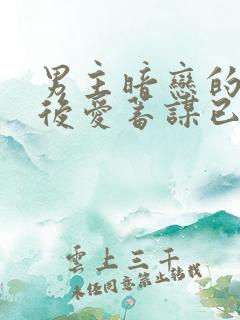 男主暗戀的
後愛蓄謀已
雲上三千
未經同意禁止轉載